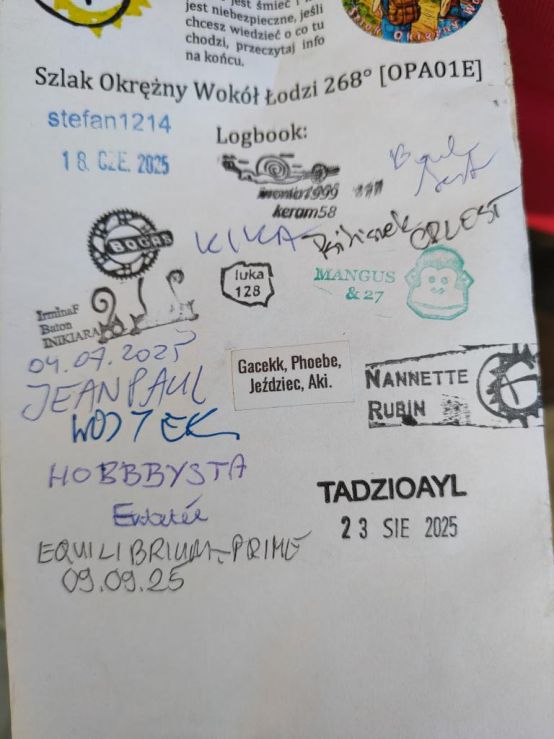 jest śmieć i
jest niebezpieczne, jeśli
chcesz wiedzieć o co tu
chodzi, przeczytaj info
na końcu.
Szlak Okrężny Wokół Łodzi 268° [OPA01E]
stefan1214
Logbook:
18. CZE. 2025
keram58
BOGAS
KIKA
ORLEST
luka
128
MANGUS
& 27
IrminaF
Baton
INIKIARA
04.07.2025
JEANPAUL
WOJTEK
Gacekk, Phoebe,
Jeździec, Aki.
NANNETTE
RUBIN
HOBBBYSTA
TADZIOAYL
23 SIE 2025
EQUILIBRIUM-PRIME
09.09.25